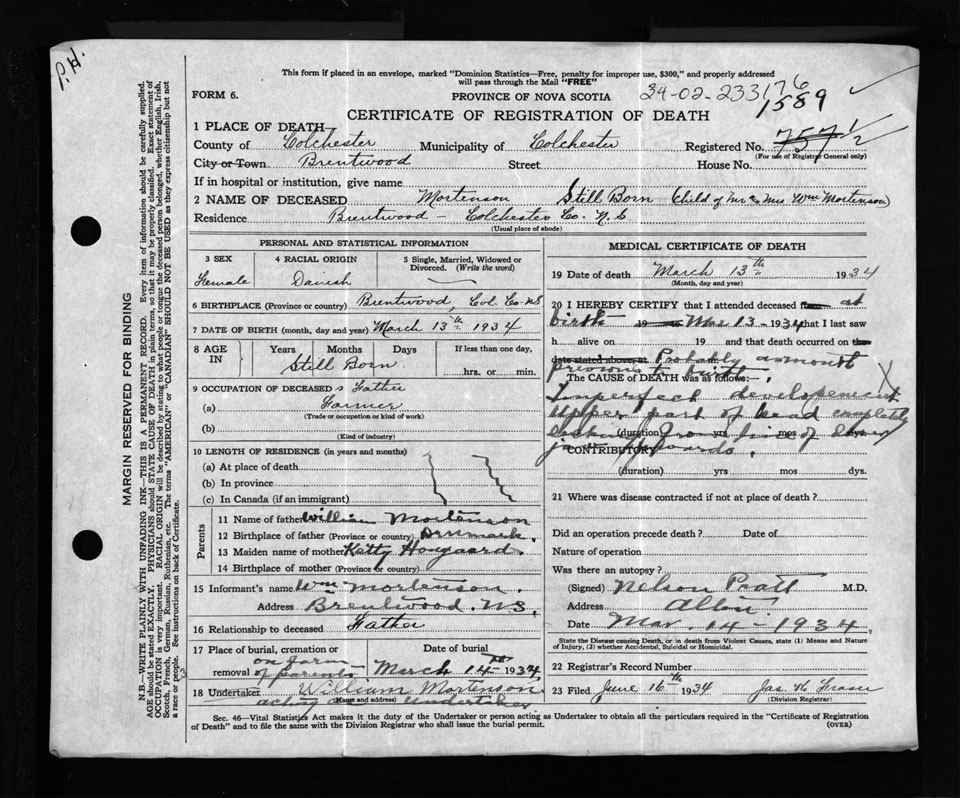 P.H.
This form if placed in an envelope, marked "Dominion Statistics—Free, penalty for improper use, $300," and properly addressed
will pass through the Mail "FREE"
FORM 6.
PROVINCE OF NOVA SCOTIA
34-02-233176
1589
CERTIFICATE OF REGISTRATION OF DEATH
1 PLACE OF DEATH
County of Colchester Municipality of Colchester Registered No. 757 1/2
(For use of Registrar General only)
City or Town Brentwood Street House No.
If in hospital or institution, give name
2 NAME OF DECEASED Mortenson Still Born (Child of Mr & Mrs Wm Mortenson)
Residence Brentwood - Colchester Co. N.S
(Usual place of abode)
PERSONAL AND STATISTICAL INFORMATION
3 SEX 4 RACIAL ORIGIN 5 Single, Married, Widowed or
Divorced. (Write the word)
Female Danish
6 BIRTHPLACE (Province or country) Brentwood, Col. Co. NS
7 DATE OF BIRTH (month, day and year) March 13th 1934
8 AGE IN Years Months Days If less than one day,
Still Born hrs. or min.
9 OCCUPATION OF DECEASED s Father
(a) Farmer
(Trade or occupation or kind of work)
(b)
(Kind of industry)
10 LENGTH OF RESIDENCE (in years and months)
(a) At place of death
(b) In province
(c) In Canada (if an immigrant)
Parents
11 Name of father William Mortenson
12 Birthplace of father (Province or country) Denmark.
13 Maiden name of mother Katty Hougaard.
14 Birthplace of mother (Province or country)
15 Informant's name Wm Mortenson.
Address Brentwood. N.S.
16 Relationship to deceased Father
17 Place of burial, cremation or Date of burial
removal on farm of parents March 14th 1934
18 Undertaker William Mortenson
(Name and address)
acting as Undertaker
MEDICAL CERTIFICATE OF DEATH
19 Date of death March 13th 1934
(Month, day and year)
20 I HEREBY CERTIFY that I attended deceased from at
birth 19 to Mar 13-1934 that I last saw
h alive on 19 and that death occurred on the
date stated above, at Probably a month
previous to birth.
The CAUSE OF DEATH was as follows:
Imperfect developement
Upper part of head completely
lacking from line of lower
(duration) yrs mos dys.
jaw upwards.
CONTRIBUTORY
(duration) yrs mos dys.
21 Where was disease contracted if not at place of death?
Did an operation precede death? Date of
Nature of operation
Was there an autopsy?
(Signed) Nelson Pratt M.D.
Address Alton.
Date Mar. 14-1934.
State the Disease causing Death, or in death from Violent Causes, state (1) Means and Nature
of Injury, (2) whether Accidental, Suicidal or Homicidal.
22 Registrar's Record Number
23 Filed June 16th 1934 Jas. W Fraser
(Division Registrar)
Sec. 46—Vital Statistics Act makes it the duty of the Undertaker or person acting as Undertaker to obtain all the particulars required in the "Certificate of Registration
of Death" and to file the same with the Division Registrar who shall issue the burial permit. (OVER)
MARGIN RESERVED FOR BINDING
N.B.—WRITE PLAINLY WITH UNFADING INK—THIS IS A PERMANENT RECORD. Every item of information should be carefully supplied.
AGE should be stated EXACTLY. PHYSICIANS should STATE CAUSE OF DEATH in plain terms, so that it may be properly classified. Exact statement of
OCCUPATION is very important. RACIAL ORIGIN will be described by stating to what people or tongue the deceased person belonged, whether English, Irish,
Scotch, French, German, Russian, Ruthenian, etc. The terms "AMERICAN" or "CANADIAN" SHOULD NOT BE USED as they express citizenship but not
a race or people. See instructions on back of Certificate.